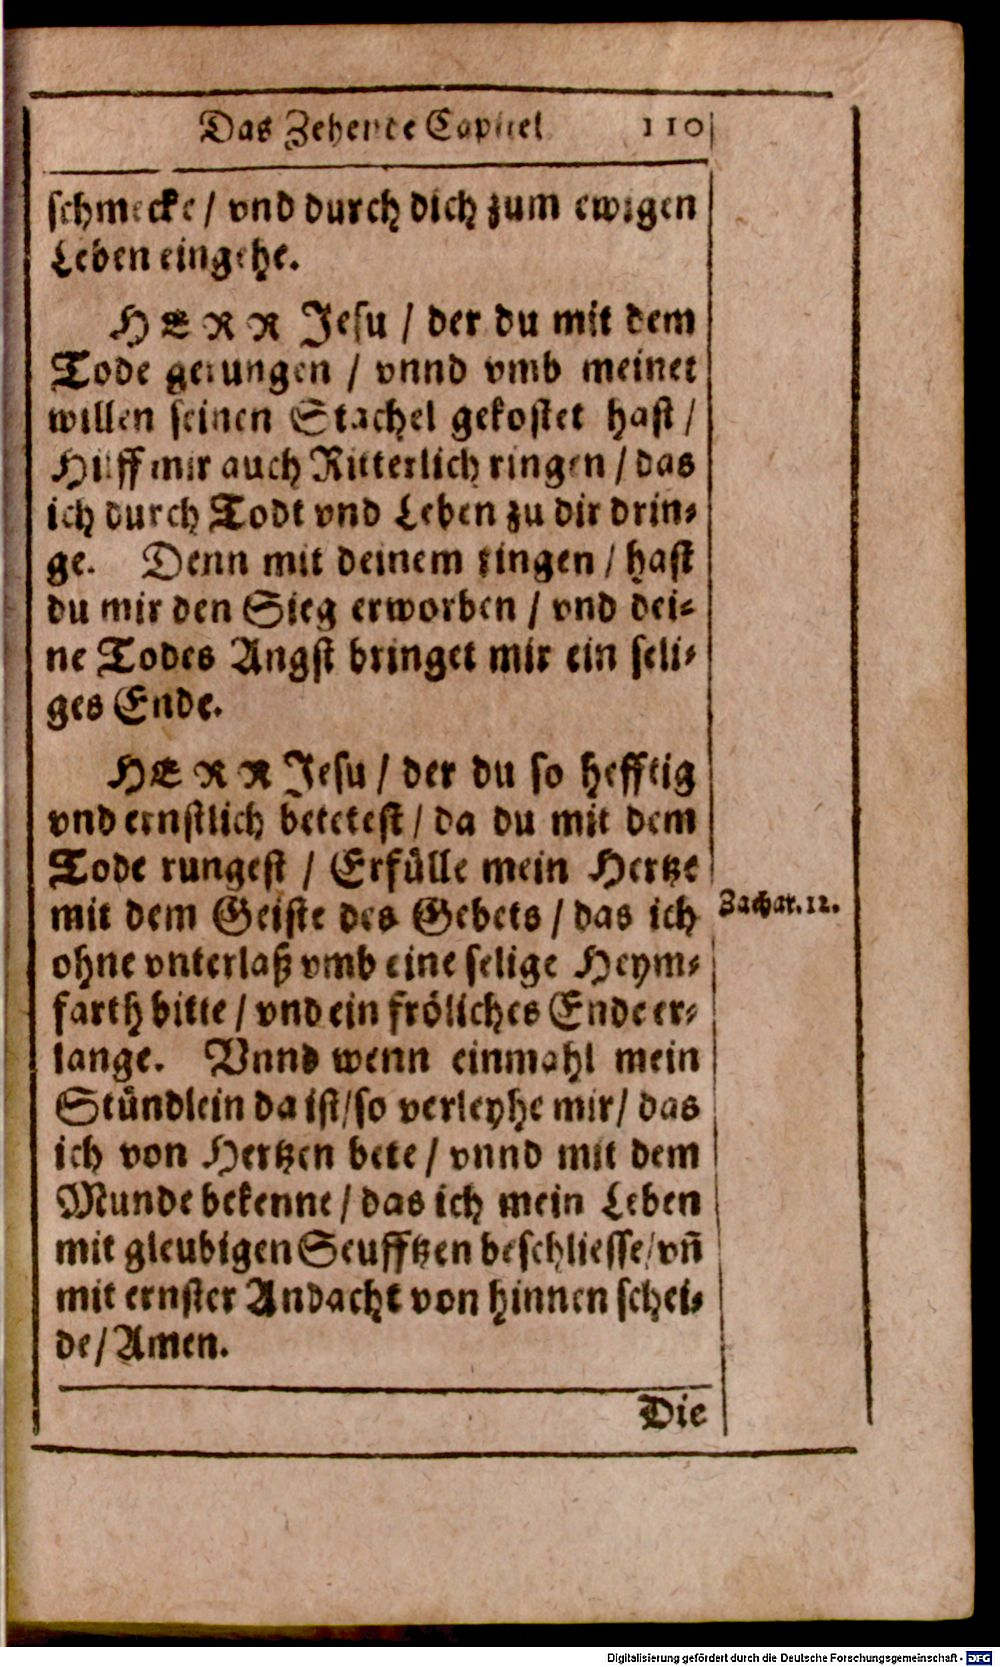 Das Zehente Capitel 110
schmecke / vnd durch dich zum ewigen
Leben eingehe.
HERR Jesu / der du mit dem
Tode gerungen / vnnd vmb meinet
willen seinen Stachel gekostet hast /
Hilff mir auch Ritterlich ringen / das
ich durch Todt vnd Leben zu dir drin-
ge. Denn mit deinem ringen / hast
du mir den Sieg erworben / vnd dei-
ne Todes Angst bringet mir ein seli-
ges Ende.
HERR Jesu / der du so hefftig
vnd ernstlich betetest / da du mit dem
Tode rungest / Erfülle mein Hertze
mit dem Geiste des Gebets / das ich
Zachar. 12.
ohne vnterlaß vmb eine selige Heym-
farth bitte / vnd ein fröliches Ende er-
lange. Vnnd wenn einmahl mein
Stündlein da ist / so verleyhe mir / das
ich von Hertzen bete / vnnd mit dem
Munde bekenne / das ich mein Leben
mit gleubigen Seufftzen beschliesse / vñ
mit ernster Andacht von hinnen schei-
de / Amen.
Die
Digitalisierung gefördert durch die Deutsche Forschungsgemeinschaft - DFG